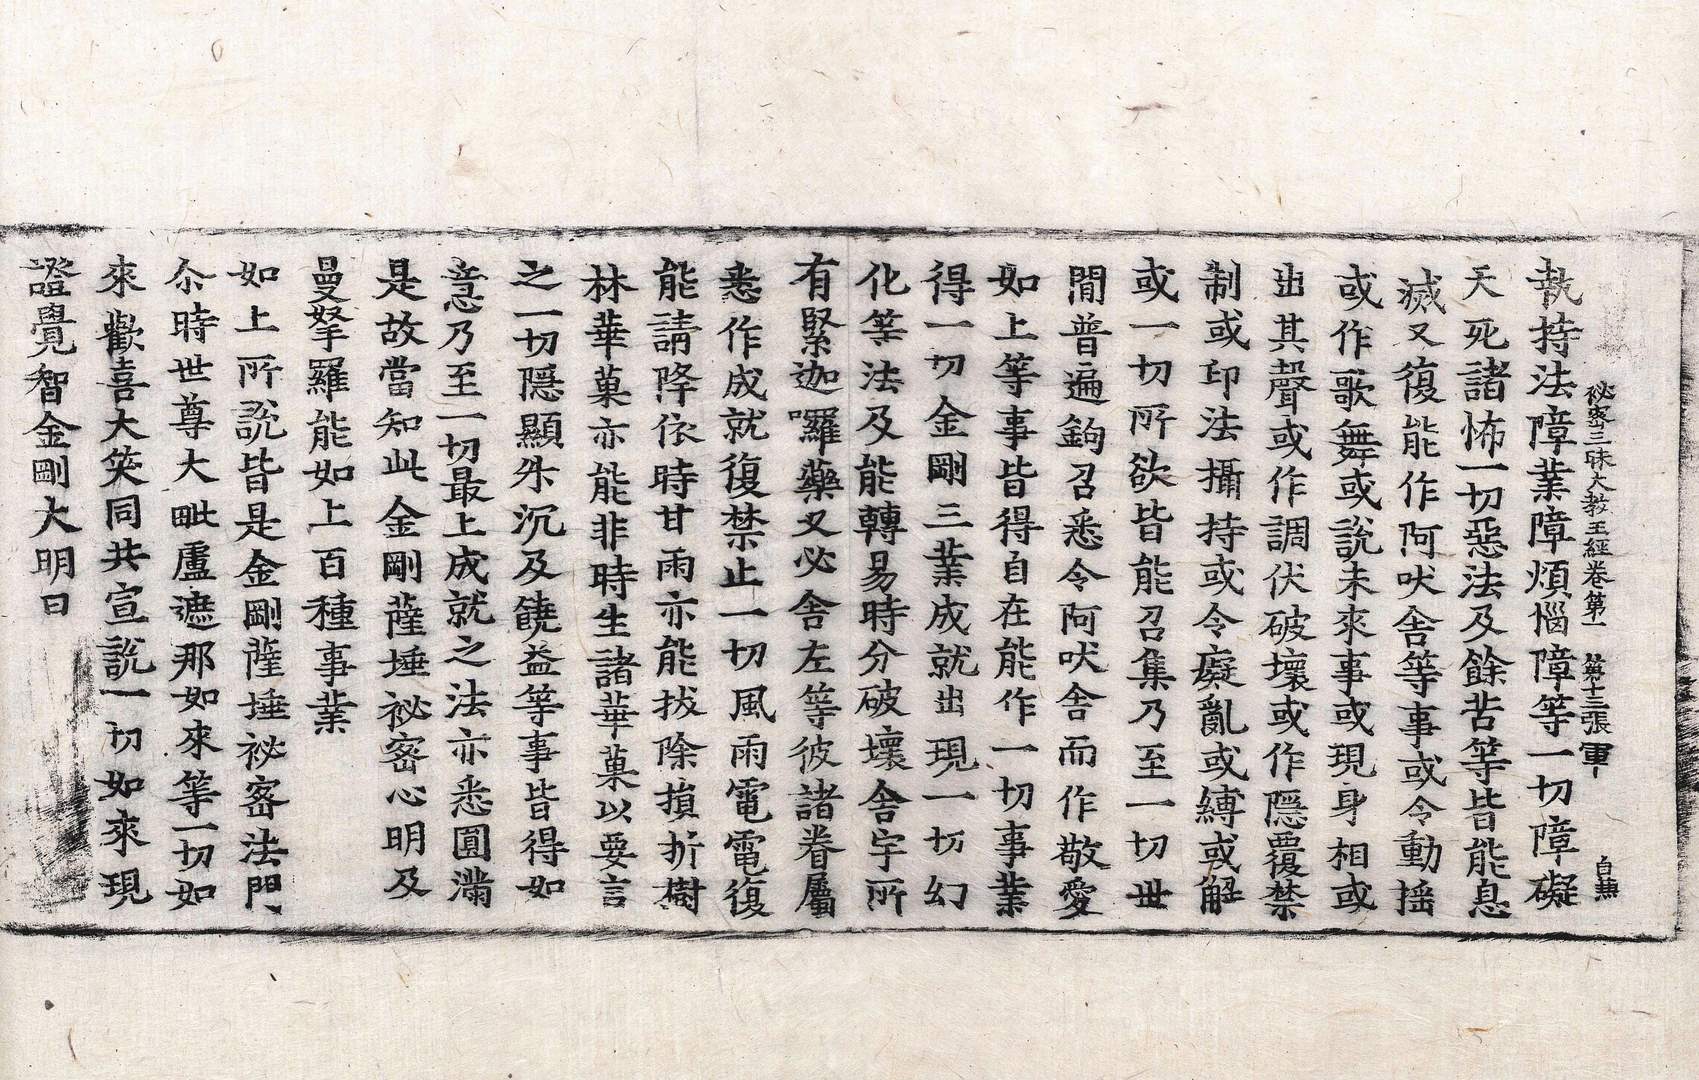 祕密三昧大敎王經卷第一 第十三張 軍 自燕
執持法障業障煩惱障等一切障礙
天死諸怖一切惡法及餘苦等皆能息
滅又復能作阿吠舍等事或令動揺
或作歌舞或說未來事或現身相或
出其聲或作調伏破壞或作隱覆禁
制或印法攝持或令癡亂或縛或解
或一切所欲皆能召集乃至一切世
間普遍鉤召悉令阿吠舍而作敬愛
如上等事皆得自在能作一切事業
得一切金剛三業成就出現一切幻
化等法及能轉易時分破壞舍宇所
有緊迦囉藥叉必舍左等彼諸眷屬
悉作成就復禁止一切風雨電電復
能請降依時甘雨亦能拔除損折樹
林華菓亦能非時生諸華菓以要言
之一切隱顯外沉及饒益等事皆得如
意乃至一切最上成就之法亦悉圓滿
是故當知此金剛薩埵祕密心明及
曼拏羅能如上百種事業
如上所說皆是金剛薩埵祕密法門
尒時世尊大毗盧遮那如來等一切如
來歡喜大笑同共宣說一切如來現
證覺智金剛大明曰